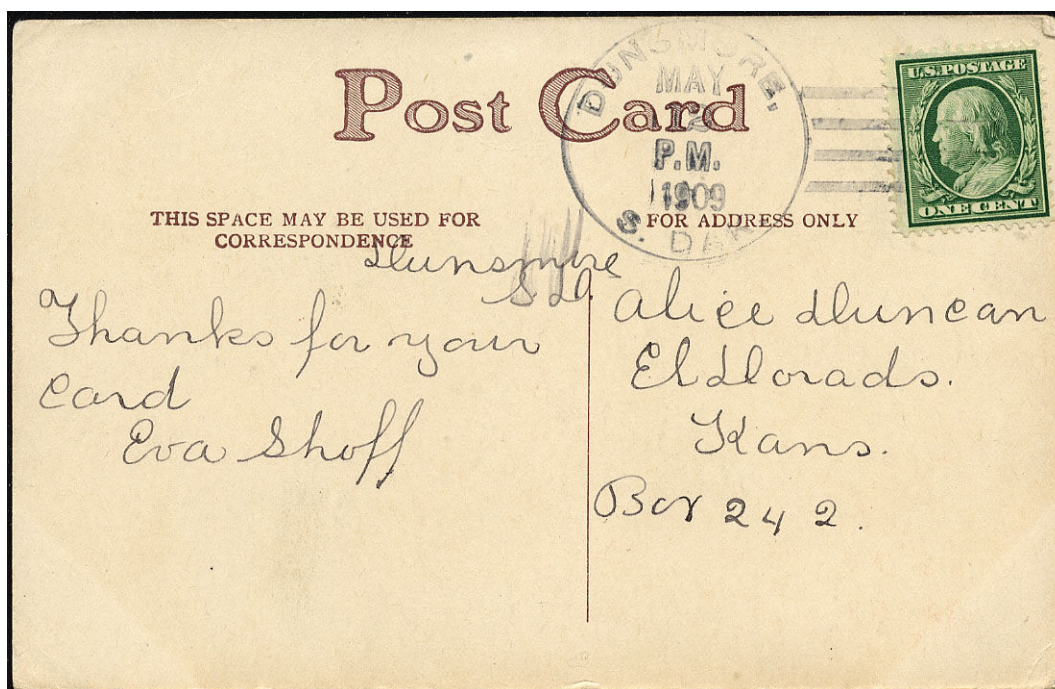 Post Card
DUNSMORE,
MAY
2
P.M.
1909
S. DAK
U.S. POSTAGE
ONE CENT
THIS SPACE MAY BE USED FOR
CORRESPONDENCE
FOR ADDRESS ONLY
Dunsmore
S D.
Thanks for your
card
Eva Shoff
Alice Duncan
El Dorado.
Kans.
Box 242.